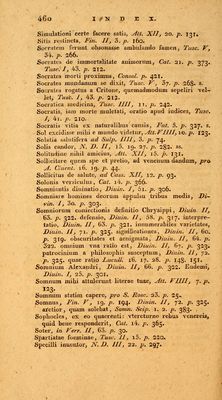 460 I N D E X.
Simulationi certe facere satis, Att. XII, 20. p. 131.
Sitis restincta, Fin. II, 3. p. 160.
Socratem ferunt obsonasse ambulando famem, Tusc. V,
34. p. 266.
Socrates de immortalitate animorum, Cat. 21. p. 373.
Tusc. I, 43. p. 212.
Socrates morti proximus, Consol. p. 421.
Socrates mundanum se dixit, Tusc. V, 37. p. 268. s.
Socrates rogatus a Critone, quemadmodum sepeliri vel-
let, Tusc. I, 43. p. 213.
Socratica medicina, Tusc. IIII, 11. p. 242.
Socratis, iam morte multati, oratio apud iudices, Tusc.
I, 41. p. 210.
Socratis vitia ex naturalibus causis, Fat. 5. p. 327. s.
Sol excidisse mihi e mundo videtur, Att. VIIII, 10. p. 123.
Solatia subsidiera ad Sulp. IIII, 3. p. 74.
Solis candor, N. D. II, 15. 19. 27. p. 282. ss.
Solitudine nihil amicius, Att. XII, 15. p. 131.
Sollicitare quum spe et pretio, ad venenum dandum, pro
A. Cluent. 16. 19. p. 44.
Sollicitus de salute, ad Cass. XII, 12. p. 93.
Solonis versiculus, Cat. 14. p. 366.
Somniantis diuinatio, Diuin. I, 51. p. 306.
Somniare homines deorum appulsu tribus modis, Di-
uin. I, 30. p. 303.
Somniorum coniectionis definitio Chrysippi, Diuin. II,
63. p. 322. defensio, Diuin. II, 58. p. 317. interpre-
tatio, Diuin. II, 63. p. 321. innumerabiles varietates,
Diuin. II, 71. p. 325. significationes, Diuin. II, 60.
p. 319. obscuritates et aenigmata, Diuin. II, 64. p.
322. omnium vna ratio est, Diuin. II, 67. p. 323.
patrocinium a philosophis susceptum, Diuin. II, 72.
p. 325. quae ratio Aurel. 16. 17. 28. p. 148. 151.
Somnium Alexandri, Diuin. II, 66. p. 322. Eudemi,
Diuin. I, 25. p. 301.
Somnum mihi attulerunt literae tuae, Att. VIIII, 7. p.
123.
Somnum statim capere, pro S. Rosc. 23. p. 25.
Somnus, Fin. V, 19. p. 194. Diuin. II, 72. p. 325.
arctior, quam solebat, Somn. Scip. 1. 2. p. 383.
Sophocles, ex eo quaerenti: vtereturne rebus venereis,
quid bene responderit, Cat. 14. p. 365.
Soter, in Verr. II, 63. p. 30.
Spartiatae foeminae, Tusc. II, 15. p. 220.
Specilli inuentor, N. D. III, 22. p. 297.